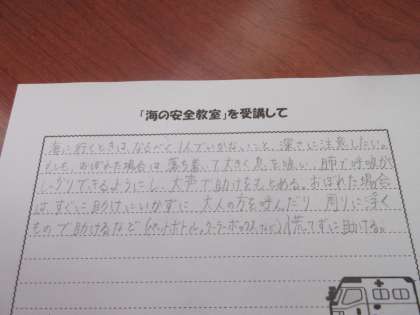 「海の安全教室」を受講して
海に行くときは、なるべく1人でいかないこと、深さに注意したい。
もしも、おぼれた場合は落ち着いて大きく息を吸い、肺で呼吸が
しっかりできるようにし、大声で助けをもとめる。おぼれた場合
はすぐに助けにいかずに大人の方を呼んだり、周りに浮く
もので助けるなど(ペットボトル、クーラーボックスなど)慌てずに助ける。